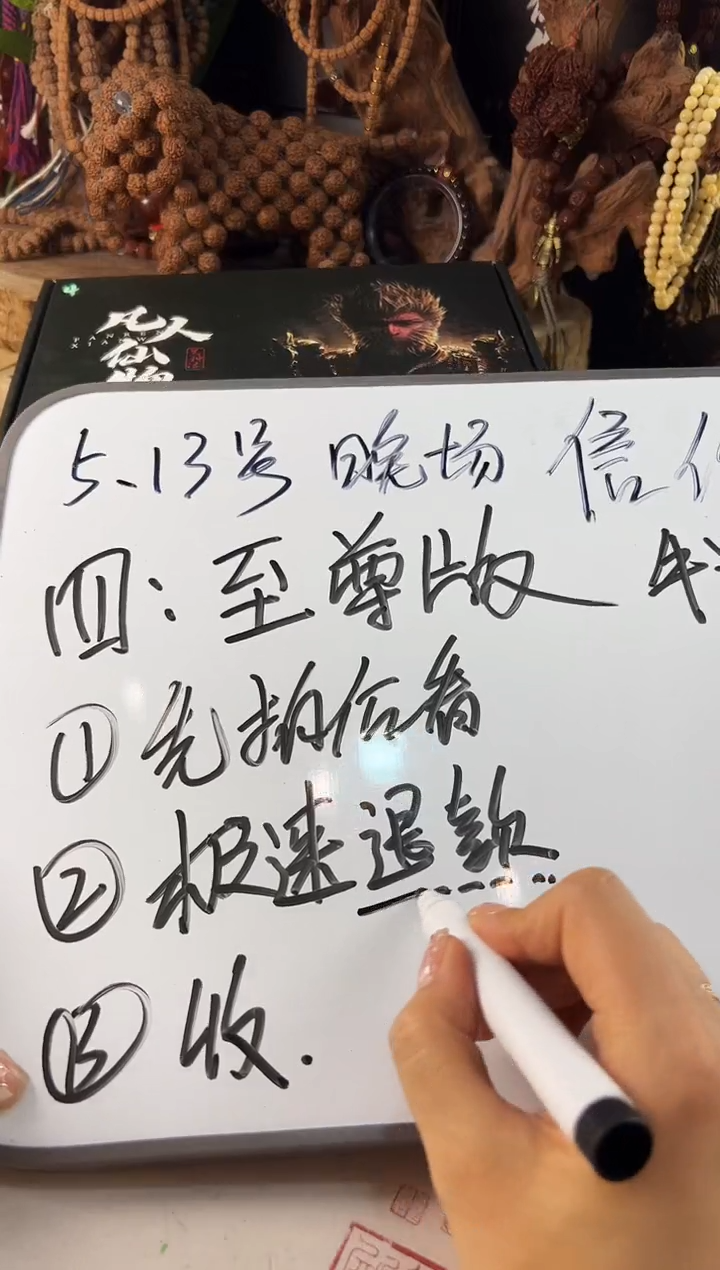 凡人
仙
5、13号 晚场 信
四：至尊版
① 先拍后看
② 极速退款
③ 收.